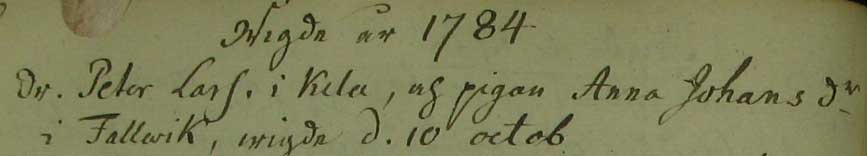 Wigde år 1784
Dr. Peter Larss. i Kila, och pigan Anna Johans dr
i Fallwik, wigde d. 10 octob